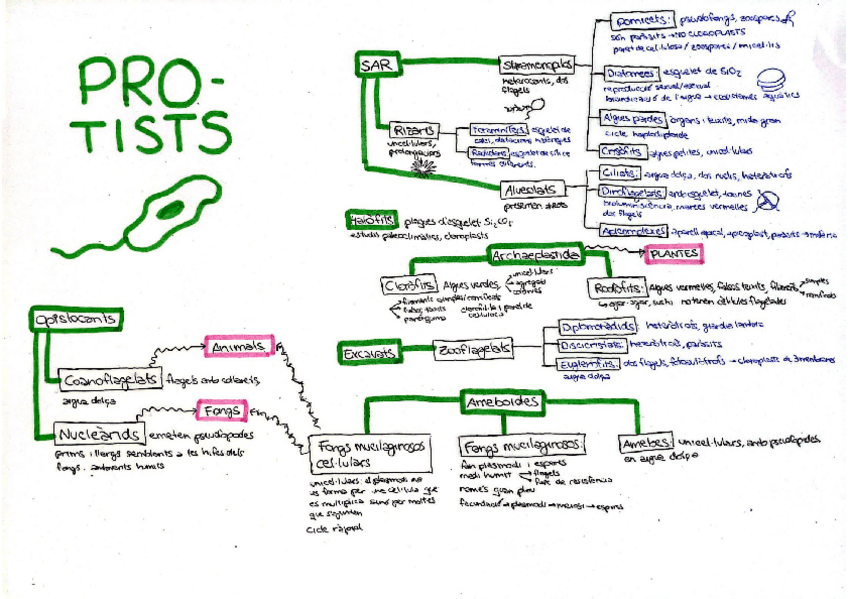 PRO-
TISTS
SAR
Stramenopiles
heteroconts, dos
flagels
Oomicets: pseudofongs, zoospores
són paràsits → NO CLOROPLASTS
paret de cel·lulosa / zoospores / micelis
Diatomees: esquelet de SiO2
reproducció sexual/asexual
de l'aigua → ecosistemes aquàtics
Algues pardes: òrgans i teixits, mida gran
cicle haplodiplont
Criòfits: algues petites, unicel·lulars
Rizaris
unicel·lulars,
prolongacions
Foraminífers: esquelet de
Radiolaris: esquelet de sílice
formes diferents.
Alveolats
presenten
Ciliats: aigua dolça, dos nuclis, heteròtrofs
Dinoflagelats: amb esquelet, toxines
bioluminiscència, marees vermelles
dos flagels
Apicomplexes: aparell apical, apicoplast, paràsits →
Haiòfits: plaques d'esquelet
estudis paleoclimàtics, cloroplasts
Archaeplastida
PLANTES
Cloròfits: Algues verdes,
unicel·lulars
agregats
colònies
filaments simples/ramificats
falsos teixits
parènquima
clorofil·la i paret de
cel·lulosa
Rodòfits: Algues vermelles, falsos teixits, filaments
simples
ramificats
agar-agar, sushi no tenen cèl·lules flagelades
Opistoconts
Animals
Coanoflagelats: flagels amb collaret,
aigua dolça
Fongs
Nucleàrids: emeten pseudopodes
prims i llargs semblants a les hifes dels
fongs. ambients humits
Excavats
Zooflagelats
Diplomonàdids: heteròtrofs, giardia lamblia
Discicristats: heteròtrofs, paràsits
Euglenòfits: dos flagels, fotoautòtrofs → cloroplasts de 3 membranes
aigua dolça
Ameboides
Fongs mucilaginosos
cel·lulars
unicel·lulars: el plasmodi no
es forma per una cèl·lula que
es multiplica sinó per moltes
que s'ajunten
cicle
Fongs mucilaginosos:
fan plasmodi i espores
medi humit
flagels
fase de resistència
només quan plou
fecundació → plasmodi → meiosi → espores
Amebes: unicel·lulars, amb pseudopodes,
en aigua dolça